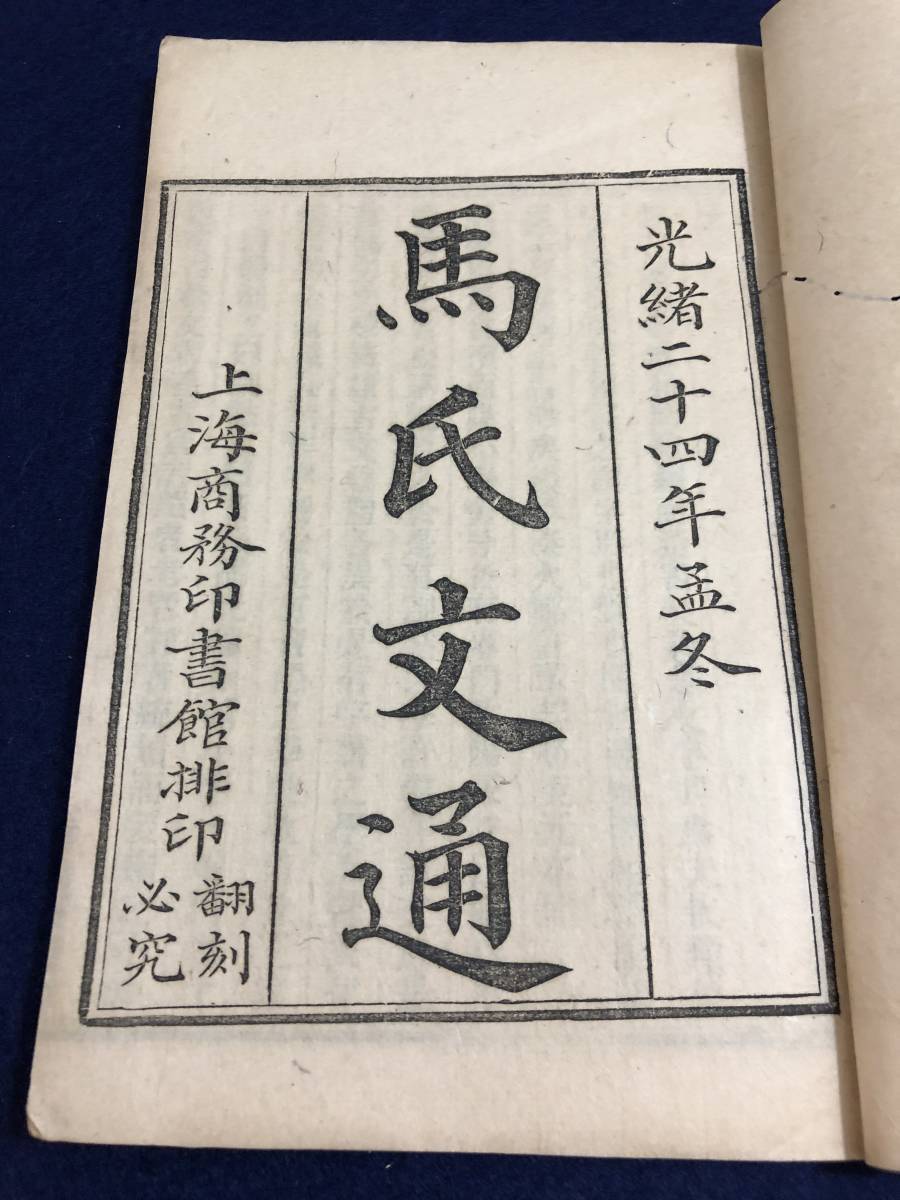 光緒二十四年孟冬
馬氏文通
上海商務印書館排印
翻刻
必究